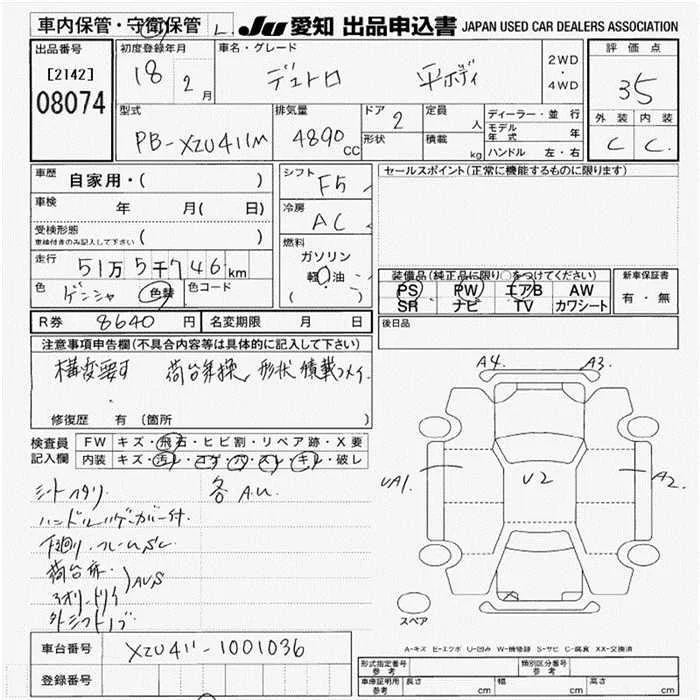 車内保管・守衛保管 L. JU 愛知 出品申込書 JAPAN USED CAR DEALERS ASSOCIATION
出品番号
[2142]
08074
初度登録年月
18 2月
車名・グレード
デュトロ 平ボディ
2WD
・
4WD
評価点
35
外装 内装
C C
型式
PB-XZU411M
排気量
4890 CC
ドア 2
形状
定員 人
積載 kg
ディーラー・並行
モデル年式 年
ハンドル 左・右
車歴 自家用・( )
車検 年 月( 日)
受検形態
車検付きのみ記入して下さい ( )
走行 51万5千746km
色 ゲンシャ 色替 色コード
シフト F5
冷房 AC
燃料
ガソリン
軽油
( )
セールスポイント(正常に機能するものに限ります)
装備品(純正品に限り○をつけてください)
PS PW エアB AW
SR ナビ TV カワシート
新車保証書
有・無
R券 8640円 名変期限 月 日
後日品
注意事項申告欄(不具合内容等は具体的に記入して下さい)
構変要す 荷台 形状 積載
修復歴 有 (箇所 )
検査員記入欄
FW キズ・飛石・ヒビ割・リペア跡・X要
内装 キズ・汚レ・コゲ・穴・スレ・キレ・破レ
シートヘタリ 各A.U.
ハンドル カバー付.
下廻り.フレームS.C
荷台床
アオリ.トリイ AUS
外シフトノブ
A4. A3.
UA1. U2 A2.
スペア
A-キズ E-エクボ U-凹み W-補修跡 S-サビ C-腐食 XX-交換済
車台番号 XZU411-1001036
登録番号
形式指定番号 参考 類別区分番号 参考
車庫証明用 参考 長さ cm 幅 cm 高さ cm